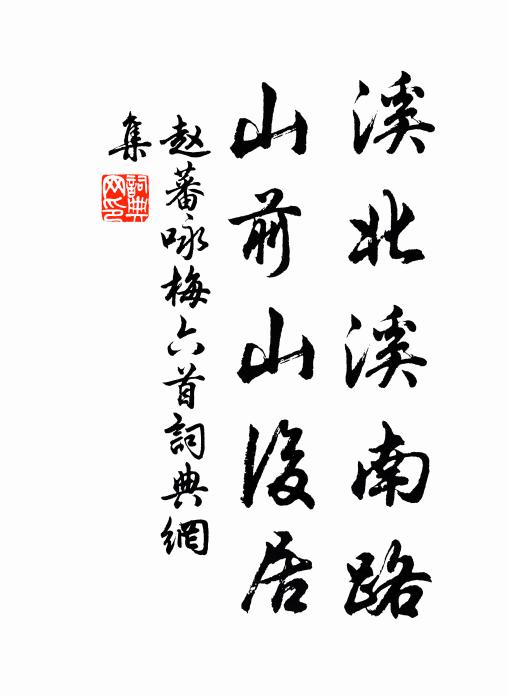 溪北溪南路
山前山後居
赵蕃咏梅六首詞典網
集
詞典
网印